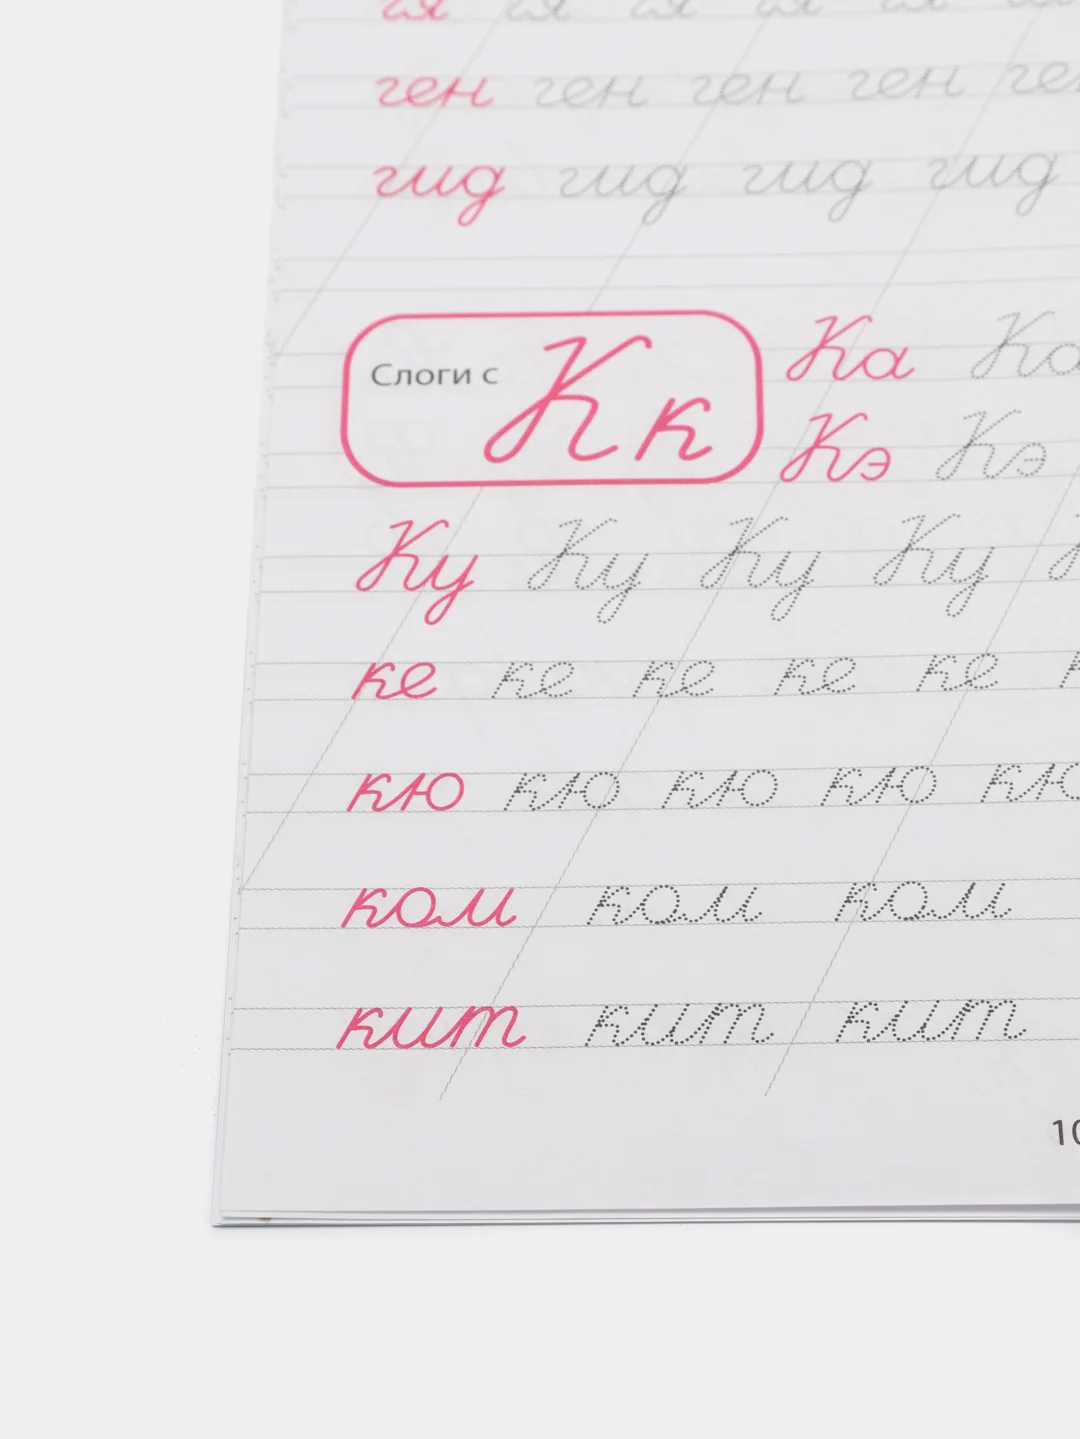 гя гя гя гя гя
ген ген ген ген ге
гид гид гид гид
Слоги с К к
Ка Ка
Кэ Кэ
Ку Ку Ку Ку
ке ке ке ке ке
кю кю кю кю кю
ком ком ком
кит кит кит
10